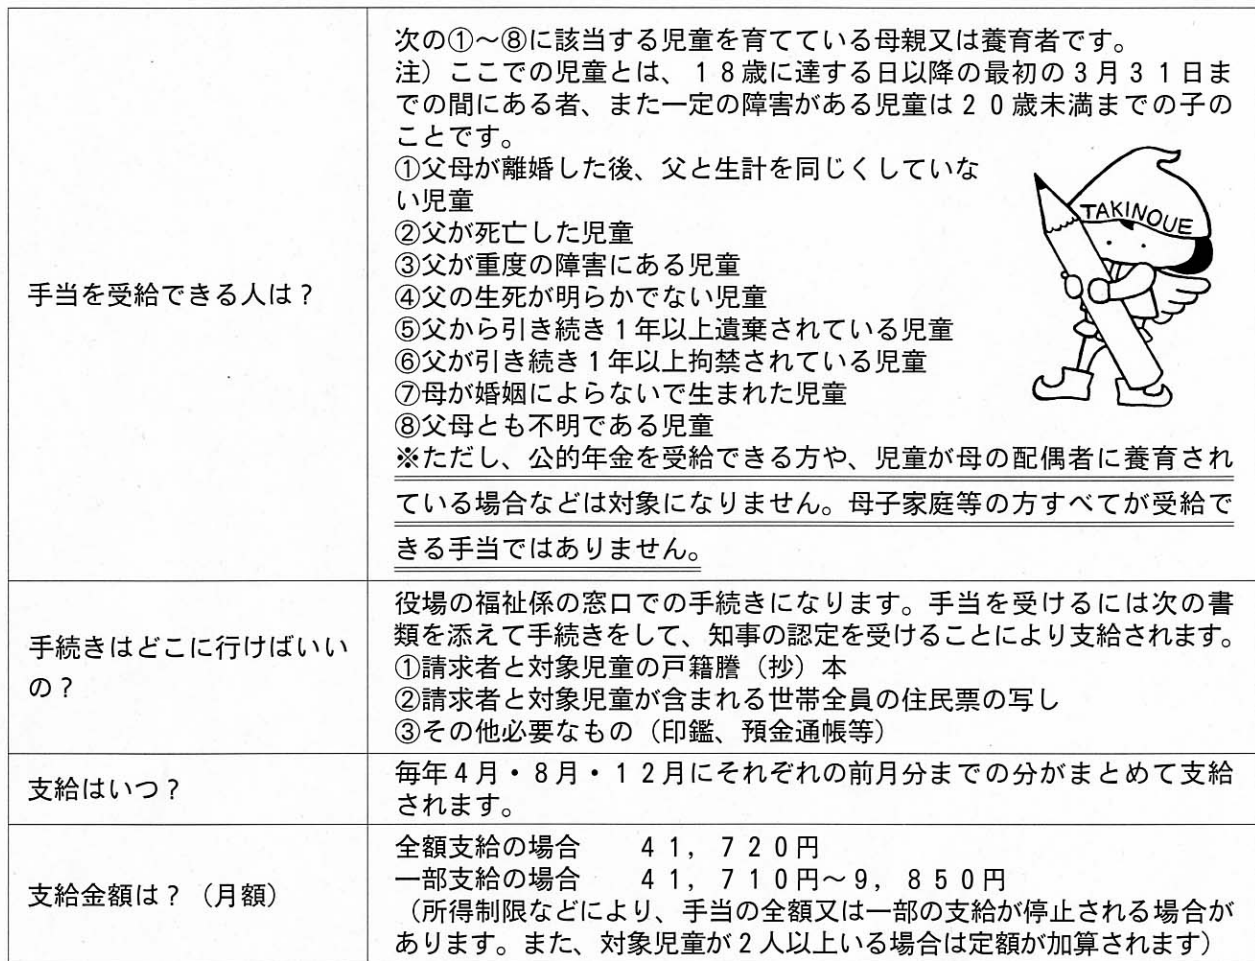 手当を受給できる人は？
次の①～⑧に該当する児童を育てている母親又は養育者です。
注）ここでの児童とは、１８歳に達する日以降の最初の３月３１日ま
での間にある者、また一定の障害がある児童は２０歳未満までの子の
ことです。
①父母が離婚した後、父と生計を同じくしていな
い児童
②父が死亡した児童
③父が重度の障害にある児童
④父の生死が明らかでない児童
⑤父から引き続き１年以上遺棄されている児童
⑥父が引き続き１年以上拘禁されている児童
⑦母が婚姻によらないで生まれた児童
⑧父母とも不明である児童
TAKINOUE
※ただし、公的年金を受給できる方や、児童が母の配偶者に養育され
ている場合などは対象になりません。母子家庭等の方すべてが受給で
きる手当ではありません。
手続きはどこに行けばいい
の？
役場の福祉係の窓口での手続きになります。手当を受けるには次の書
類を添えて手続きをして、知事の認定を受けることにより支給されます。
①請求者と対象児童の戸籍謄（抄）本
②請求者と対象児童が含まれる世帯全員の住民票の写し
③その他必要なもの（印鑑、預金通帳等）
支給はいつ？
毎年４月・８月・１２月にそれぞれの前月分までの分がまとめて支給
されます。
支給金額は？（月額）
全額支給の場合　　４１，７２０円
一部支給の場合　　４１，７１０円～９，８５０円
（所得制限などにより、手当の全額又は一部の支給が停止される場合が
あります。また、対象児童が２人以上いる場合は定額が加算されます）